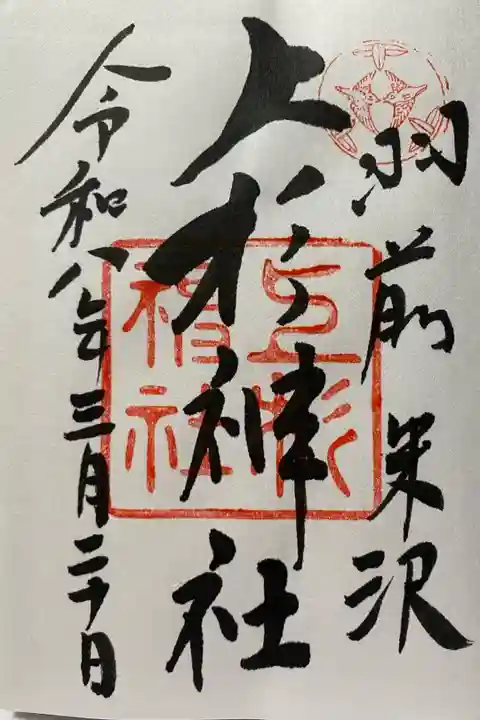 羽前米沢
上杉神社
上杉神社
令和八年三月二十日